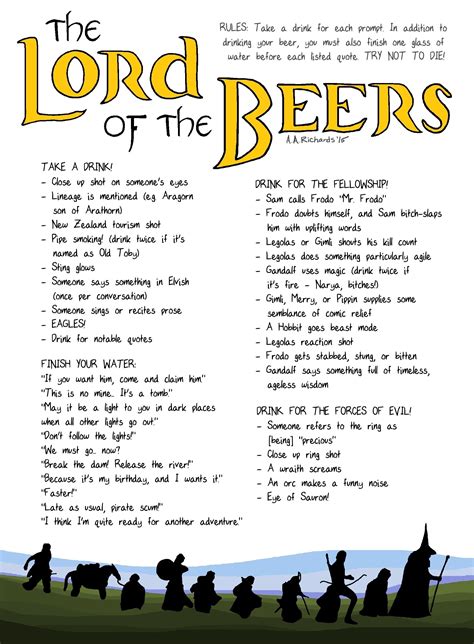 THE
LORD
OF THE
BEERS
A.A.Richards '15
RULES: Take a drink for each prompt. In addition to
drinking your beer, you must also finish one glass of
water before each listed quote. TRY NOT TO DIE!
TAKE A DRINK!
- Close up shot on someone's eyes
- Lineage is mentioned (e.g. Aragorn
son of Arathorn)
- New Zealand tourism shot
- Pipe smoking! (drink twice if it's
named as Old Toby)
- Sting glows
- Someone says something in Elvish
(once per conversation)
- Someone sings or recites prose
- EAGLES!
- Drink for notable quotes
FINISH YOUR WATER:
"If you want him, come and claim him!"
"This is no mine... It's a tomb."
"May it be a light to you in dark places
when all other lights go out."
"Don't follow the lights!"
"We must go... now?"
"Break the dam! Release the river!"
"Because it's my birthday, and I wants it."
"Faster!"
"Late as usual, pirate scum!"
"I think I'm quite ready for another adventure."
DRINK FOR THE FELLOWSHIP!
- Sam calls Frodo "Mr. Frodo"
- Frodo doubts himself, and Sam bitch-slaps
him with uplifting words
- Legolas or Gimli shouts his kill count
- Legolas does something particularly agile
- Gandalf uses magic (drink twice if
it's fire - Narya, bitches!)
- Gimli, Merry, or Pippin supplies some
semblance of comic relief
- A Hobbit goes beast mode
- Legolas reaction shot
- Frodo gets stabbed, stung, or bitten
- Gandalf says something full of timeless,
ageless wisdom
DRINK FOR THE FORCES OF EVIL!
- Someone refers to the ring as
[being] "precious"
- Close up ring shot
- A wraith screams
- An orc makes a funny noise
- Eye of Sauron!